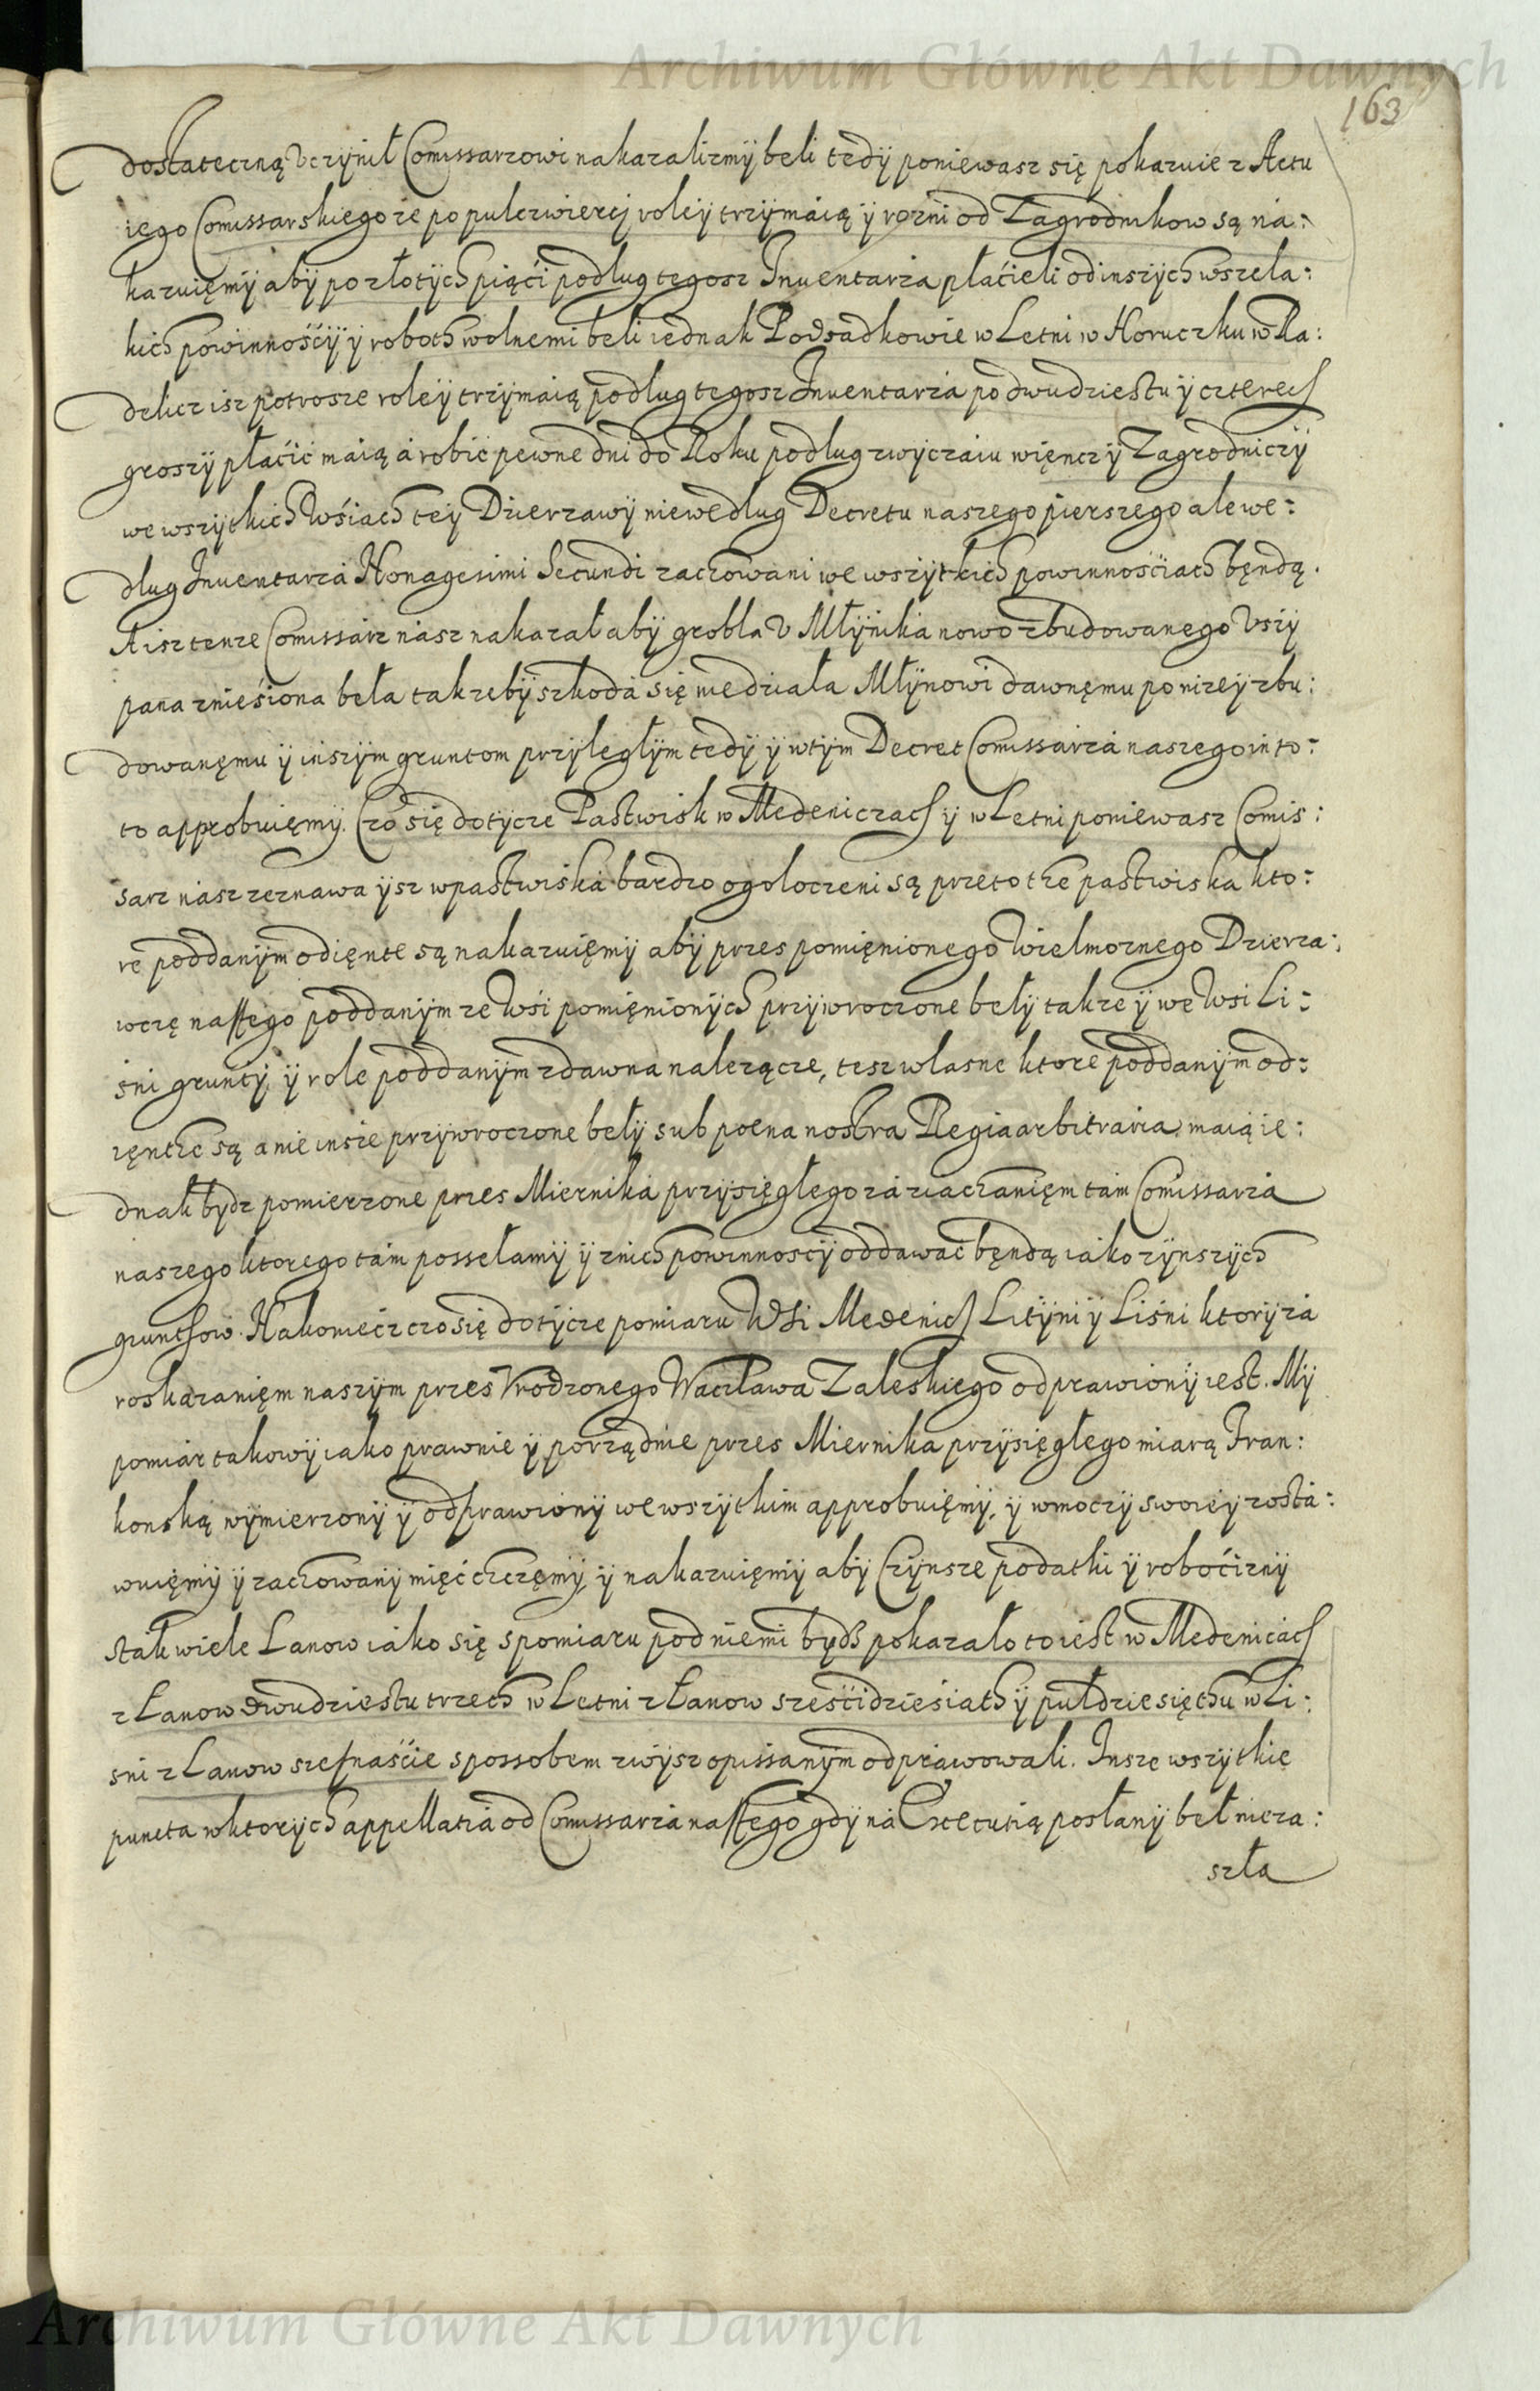 Archiwum Główne Akt Dawnych
163
dostateczną vczynił Comissarzowi nakazalizmÿ beli tedÿ poniewasz się pokazuie z Actu
iego Comissarskiego ze po pulczwierci roleÿ trzÿmaią ÿ rozni od Zagrodnikow są na:
kazuięmÿ abÿ po złotÿch piąći podług tegosz Inuentarza płaćieli od inszÿch wszela:
kich powinnośćiÿ ÿ roboth wolnemi beli iednak Podsadkowie w Letni w Horuczku w Ra:
delicz isz potrosze roleÿ trzÿmaią podług tegosz Inuentarza po dwudziestu ÿ czterech
groszÿ płaćić maią a robić pewne dni do Roku podług zwÿczaiu więncz ÿ Zagrodniczÿ
we wszÿtkich Wśiach teÿ Dzierzawÿ niewedług Decretu naszego pierszego ale we:
dług Inuentarza Nonagesimi Secundi zachowani we wszÿtkich powinnośćiach będą.
A isz tenze Comissarz nasz nakazał abÿ grobla v Młÿnika nowo zbudowanego vsÿ
pana znieśiona beła tak zebÿ szkoda się niedziała Młÿnowi dawnęmu ponizeÿ zbu:
dowanęmu ÿ inszÿm gruntom przÿległÿm tedÿ ÿ wtÿm Decret Comissarza naszego in to:
to approbuięmÿ. Czo się dotÿcze Pastwisk w Medeniczach ÿ w Letni poniewasz Comis:
sarz nasz zeznawa ÿsz w pastwiska bardzo ogołoczeni są przeto the pastwiska kto:
re poddanÿm odięnte są nakazuięmÿ abÿ przes pomięnionego Wielmoznego Dzierza:
wczę naszego poddanÿm ze Wśi pomięnionÿch przÿwroczone bełÿ takze ÿ we Wsi Li:
śni gruntÿ ÿ role poddanÿm zdawna nalezącze, tesz własne ktore poddanÿm od:
ięnthe są a nie insze przÿwroczone bełÿ sub poena nostra Regia arbitraria maią ie:
dnak bÿdz pomierzone przes Miernika przÿsięgłego za ziachanięm tam Comissarza
naszego ktorego tam possełamÿ ÿ znich powinnoscÿ oddawać będą iako z ÿnszÿch
grunthow. Nakoniecz czo się dotÿcze pomiaru Wsi Medenich Litÿni ÿ Liśni ktorÿ za
roskazanięm naszÿm przes Vrodzonego Waczława Zaleskiego odprawionÿ iest. Mÿ
pomiar takowÿ iako prawnie ÿ porządnie przes Miernika przÿsięgłego miarą Fran:
konską wÿmierzonÿ ÿ odprawionÿ we wszÿtkim approbuięmÿ, ÿ w moczÿ swoieÿ zosta:
wuięmÿ ÿ zachowanÿ mięć chczęmÿ, ÿ nakazuięmÿ abÿ Czÿnsze podatki ÿ roboćiznÿ
s tak wiele Lanow iako się s pomiaru pod niemi bÿdź pokazało to iest w Medenicach
z Łanow dwudziestu trzech w Letni z Łanow sześćidzieśiath ÿ pułdziesięthu w Li:
sni z Lanow szesnaśćie spossobem zwÿsz opissanÿm odprawowali. Insze wszÿtkie
puncta w ktorÿch appellatia od Comissarza naszego gdÿ na Executią posłanÿ beł nieza:
szła
Archiwum Główne Akt Dawnych